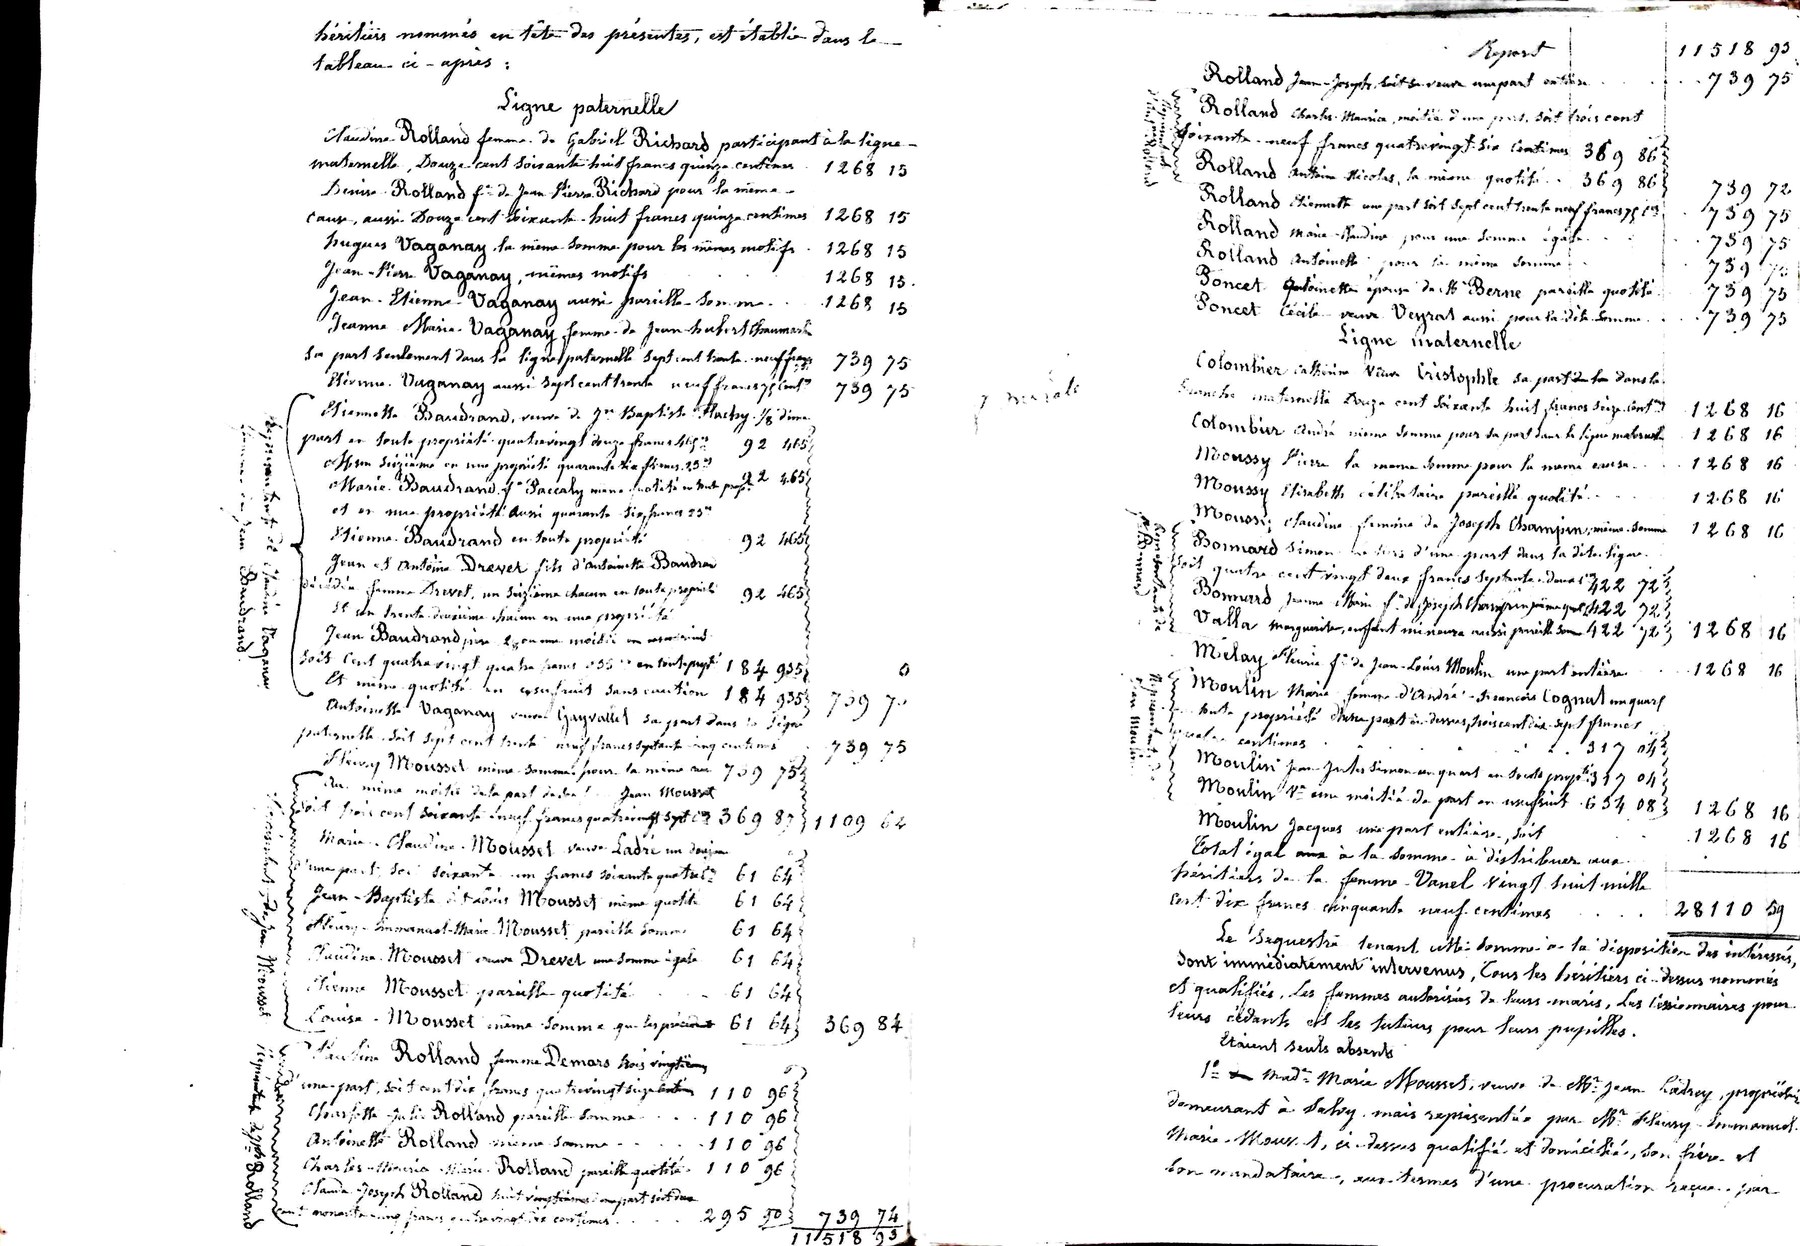 héritiers nommés en tête des présentes, est établie dans le
tableau ci-après :
Ligne paternelle
Claudine Rolland femme de Gabriel Richard participant à la ligne
maternelle, Douze cent soixante huit francs quinze centimes 1268 15
Denise Rolland fe de Jean Pierre Richard pour la même
cause, aussi Douze cent soixante huit francs quinze centimes 1268 15
hugues Vaganay la même somme pour les mêmes motifs 1268 15
Jean-Pierre Vaganay, mêmes motifs 1268 15
Jean-Etienne Vaganay aussi pareille somme 1268 15
Jeanne Marie Vaganay femme de Jean hubert
sa part seulement dans la ligne paternelle sept cent trente neuf francs 739 75
Etienne Vaganay aussi sept cent trente neuf francs 75 cent 739 75
Représentants de Claudine Vaganay
femme de Jean Baudrand
Etiennette Baudrand, veuve de Jn Baptiste 1/8 d'une
part en toute propriété quatrevingt douze francs 465 92 465
seizième en nue propriété quarante six francs 23
Marie Baudrand fe Paccaly même quotité en toute propté 92 465
et en nue propriété aussi quarante six francs 23
Etienne Baudrand en toute propriété 92 465
Jean et Antoine Drevet fils d'antoinette Baudran
décédée femme Drevet, un seizième chacun en toute propriété 92 465
et un trente deuxième chacun en nue propriété
Jean Baudrand père
soit Cent quatrevingt quatre francs 935 en toute propté 184 935 0
Et même quotité en usufruit sans caution 184 935 739 7
Antoinette Vaganay veuve Gayvallet sa part dans la ligne
paternelle soit sept cent trente neuf francs septante cinq centimes 739 75
Fleury Mousset même somme pour la même cause 739 75
Du même moitié de la part de Jean Mousset
soit trois cent soixante neuf francs quatrevingt sept 369 87 1109 62
Représentants de Jean Mousset
Marie-Claudine Mousset veuve Ladré un
d'une part soit soixante un francs soixante quatre 61 64
Jean-Baptiste Mousset même quotité 61 64
Fleury-Emmanuel-Marie Mousset pareille somme 61 64
Claudine Mousset veuve Drevet une somme égale 61 64
Etienne Mousset pareille quotité 61 64
Louise Mousset même somme que les précédents 61 64 369 84
Pauline Rolland femme Demars trois vingtièmes
d'une part, soit cent dix francs quatrevingt seize 110 96
Julie Rolland pareille somme 110 96
Antoinette Rolland même somme 110 96
Charles-Maurice-Marie Rolland pareille quotité 110 96
Claude-Joseph Rolland huit vingtièmes
cent nonante cinq francs quatrevingt dix centimes 295 90 739 74
11518 93
Report 11518 93
Rolland Jean-Joseph, soit sa veuve une part entière 739 75
Rolland Charles Maurice, moitié d'une part, soit trois cent
soixante neuf francs quatrevingt six centimes 369 86
Rolland Antoine Nicolas, la même quotité 369 86 739 72
Rolland Etiennette une part soit sept cent trente neuf francs 75 ces 739 75
Rolland Marie-Claudine pour une somme égale 739 75
Rolland Antoinette pour la même somme 739 75
Poncet Antoinette épouse de Mr Berne pareille quotité 739 75
Poncet Cécile veuve Veyrat aussi pour la dite somme 739 75
Ligne maternelle
Colombier Catherine Veuve Cristophle sa part dans la
branche maternelle Douze cent soixante huit francs seize cent 1268 16
Colombier André même somme pour sa part dans la ligne maternelle 1268 16
Moussy Pierre la même somme pour la même cause 1268 16
Moussy Elisabeth célibataire pareille quotité 1268 16
Moussy Claudine femme de Joseph Champin, même somme 1268 16
Bonnard Simon un tiers d'une part dans la dite ligne
soit quatre cent vingt deux francs septante deux 422 72
Bonnard Jeanne Marie fe de Joseph Champin même quotité 422 72
Valla Marguerite, enfant mineure aussi pareille somme 422 72 1268 16
Milay Fleurie fe de Jean-Louis Moulin une part entière 1268 16
Représentants de Jean Moulin
Moulin Marie femme d'André-François Cognut un quart
toute propriété d'une part ci-dessus, trois cent dix sept francs
quatre centimes 317 04
Moulin Jean Jules Simon un quart en toute propté 317 04
Moulin Ve une moitié de part en usufruit 634 08 1268 16
Moulin Jacques une part entière, soit 1268 16
Total égal à la somme à distribuer aux
héritiers de la femme Vanel vingt huit mille
cent dix francs cinquante neuf centimes 28110 59
Le séquestre tenant cette somme à la disposition des intéressés,
sont immédiatement intervenus, tous les héritiers ci-dessus nommés
et qualifiés, les femmes autorisées de leurs maris, les cessionnaires pour
leurs cédants et les tuteurs pour leurs pupilles.
Etaient seuls absents
1° Made Marie Mousset, veuve de Mr Jean Ladrey, propriétaire
demeurant à Salvy, mais représentée par Mr Fleury-Emmanuel
Marie Mousset, ci-dessus qualifié et domicilié, son frère et
son mandataire, aux termes d'une procuration reçue par